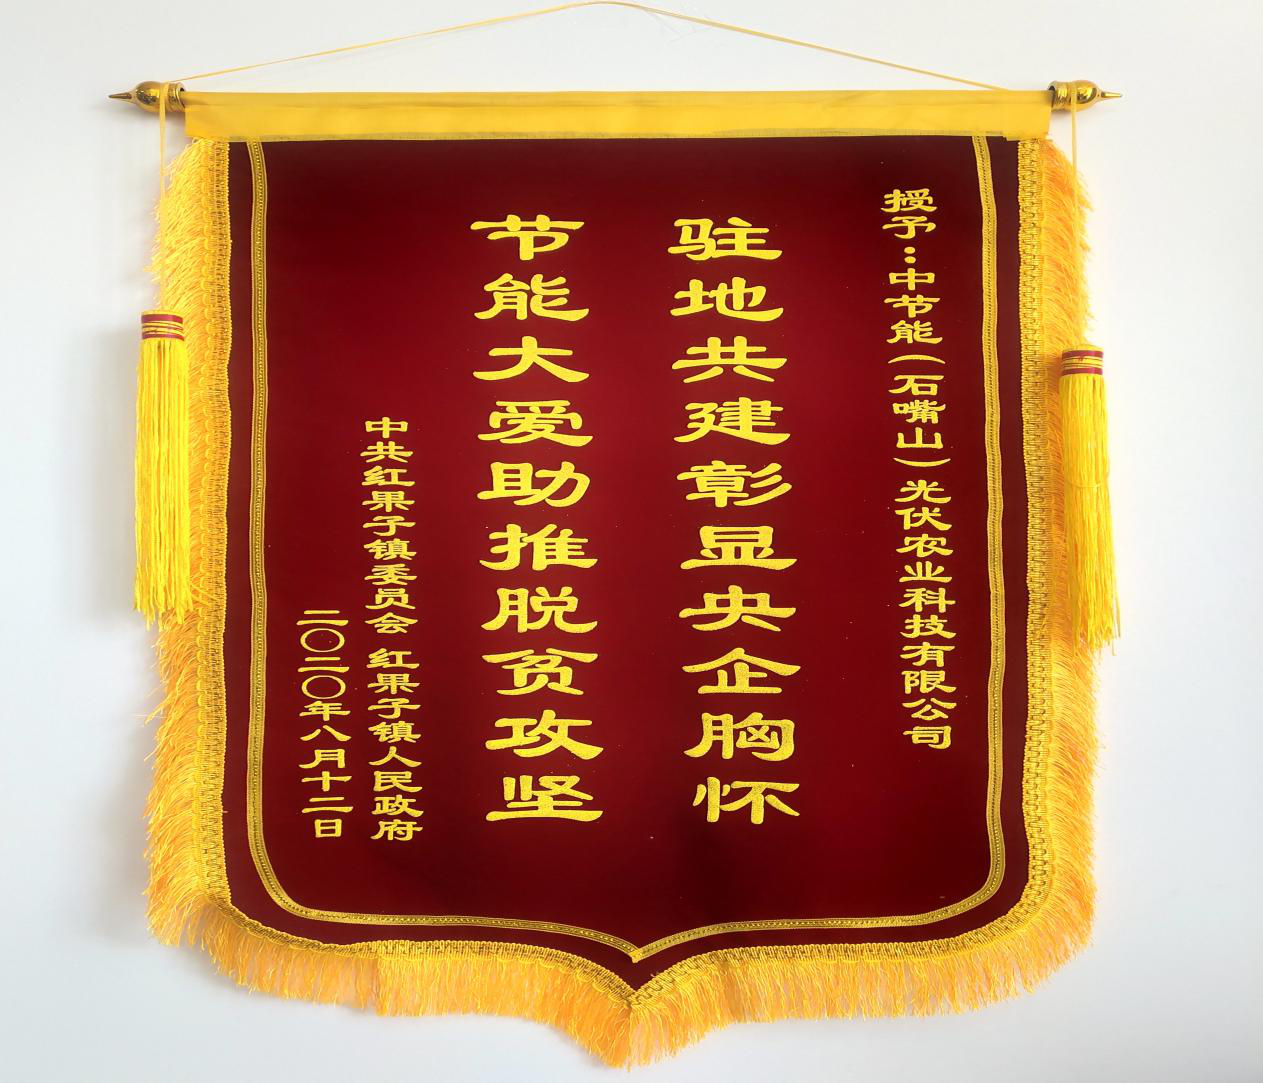 授予：中节能（石嘴山）光伏农业科技有限公司
驻地共建彰显央企胸怀
节能大爱助推脱贫攻坚
中共红果子镇委员会 红果子镇人民政府
二〇二〇年八月十二日